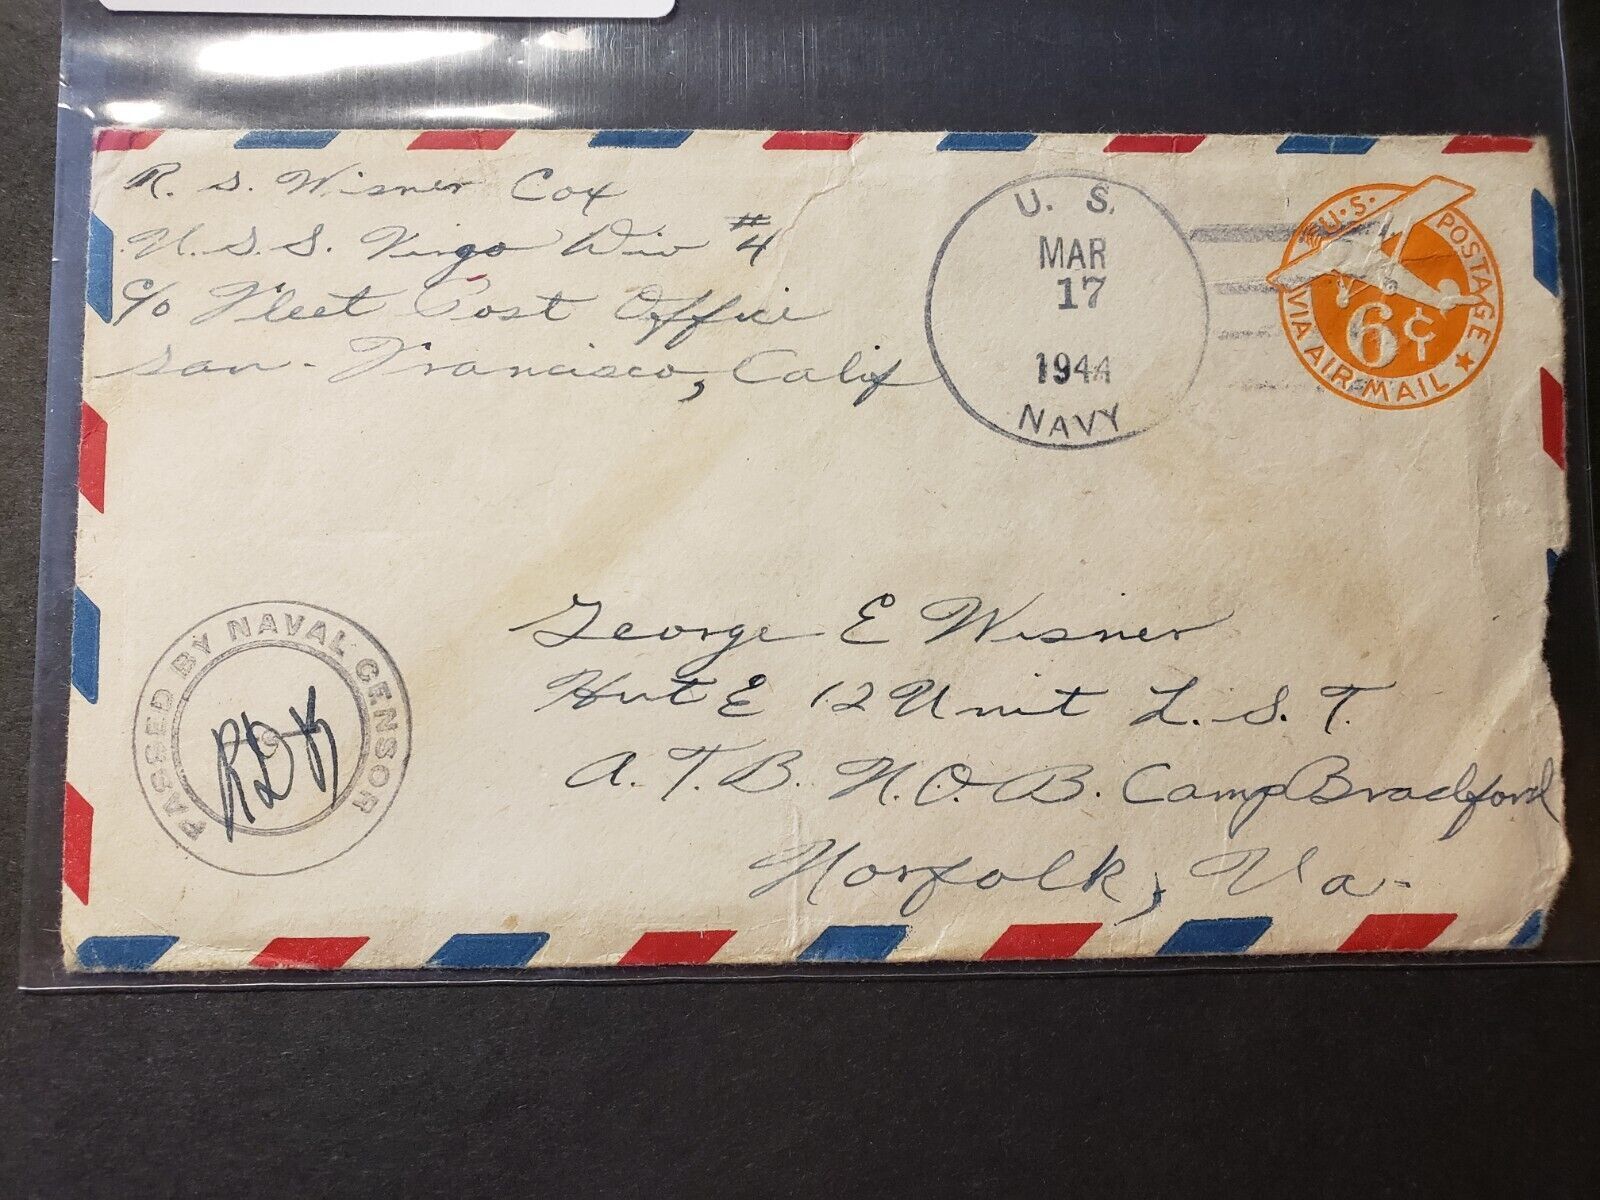 R. S. Wisner Cox
U.S.S. Virgo Div #4
c/o Fleet Post Office
San-Francisco, Calif
U. S.
MAR
17
1944
NAVY
U.S. POSTAGE
6¢
VIA AIR MAIL
PASSED BY NAVAL CENSOR
RDK
George E Wisner
Hut E 12 Unit L.S.T.
A.T.B. N.O.B. Camp Bradford
Norfolk, Va-